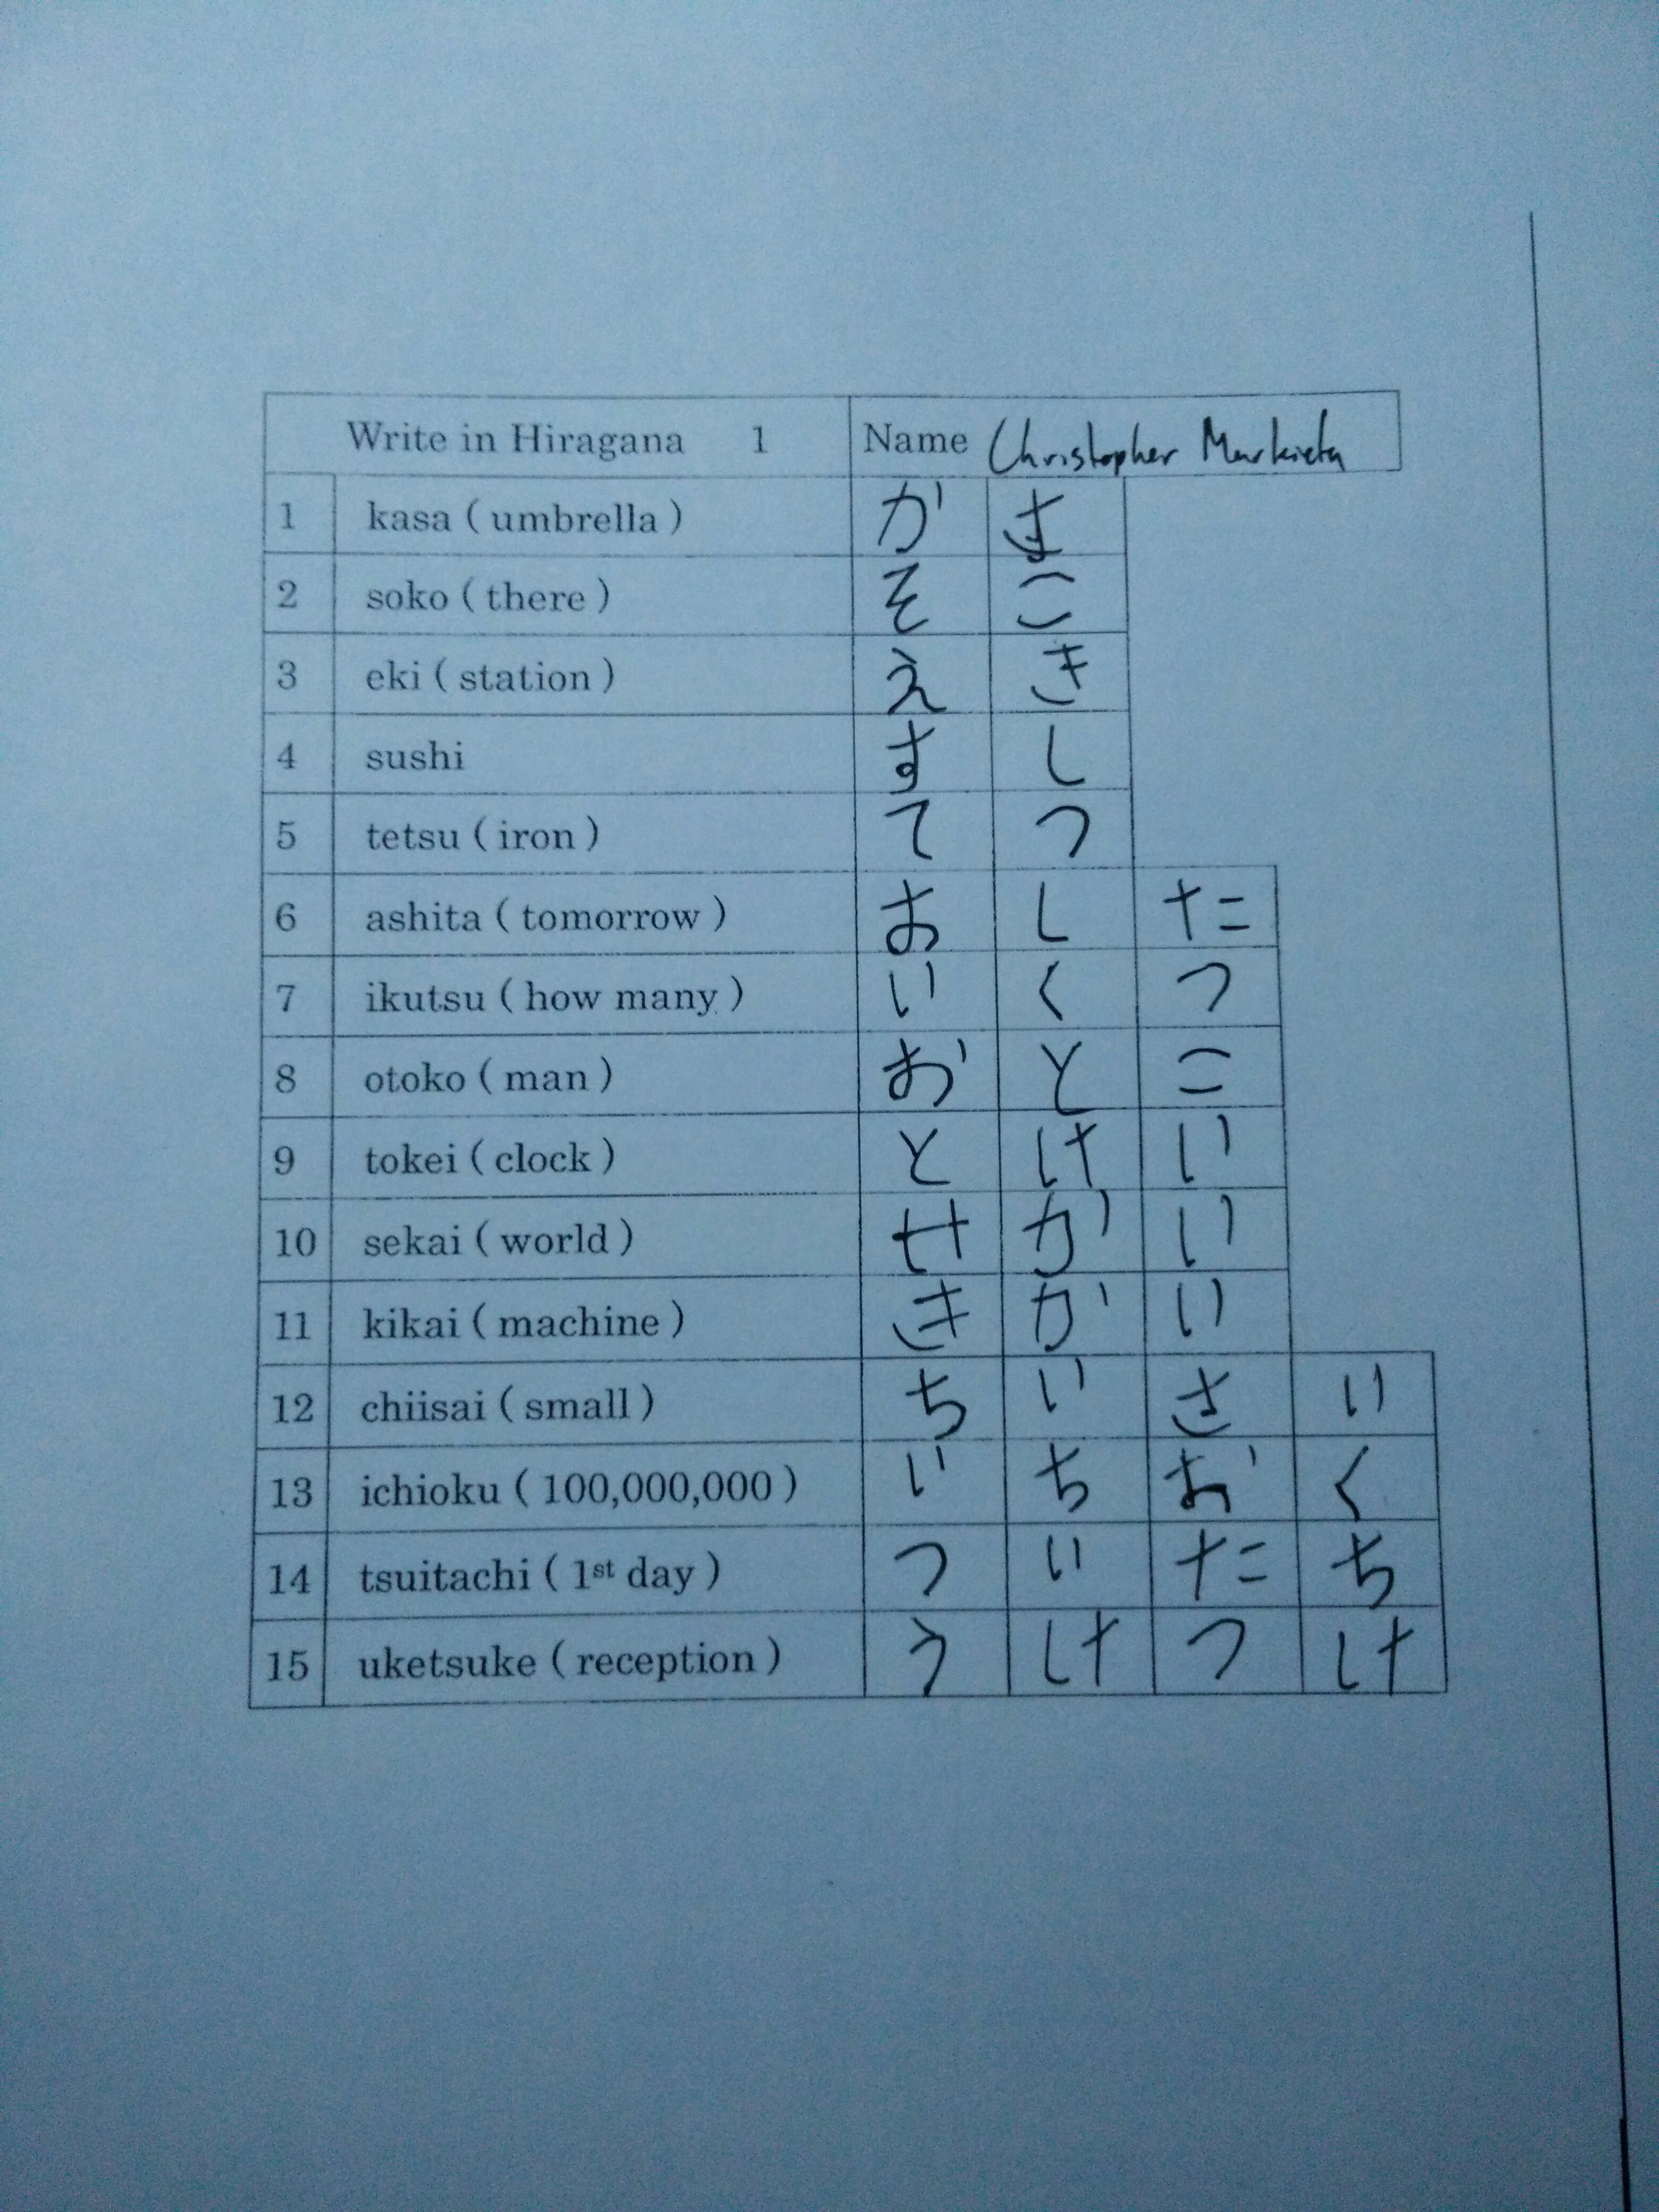 Write in Hiragana 1 Name Christopher Markieta
1 kasa ( umbrella ) か さ
2 soko ( there ) そ こ
3 eki ( station ) え き
4 sushi す し
5 tetsu ( iron ) て つ
6 ashita ( tomorrow ) あ し た
7 ikutsu ( how many ) い く つ
8 otoko ( man ) お と こ
9 tokei ( clock ) と け い
10 sekai ( world ) せ か い
11 kikai ( machine ) き か い
12 chiisai ( small ) ち い さ い
13 ichioku ( 100,000,000 ) い ち お く
14 tsuitachi ( 1st day ) つ い た ち
15 uketsuke ( reception ) う け つ け